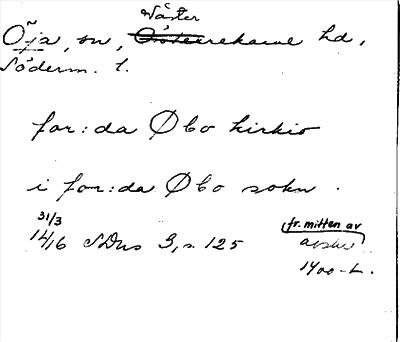 Väster
Öja, sn, Österrekarne hd,
Söderm. l.
for:da Øbo kirkio
i for:da Øbo sokn.
31/3
1416 SDns 3, s. 125
fr. mitten av
avskr.
1400-t.